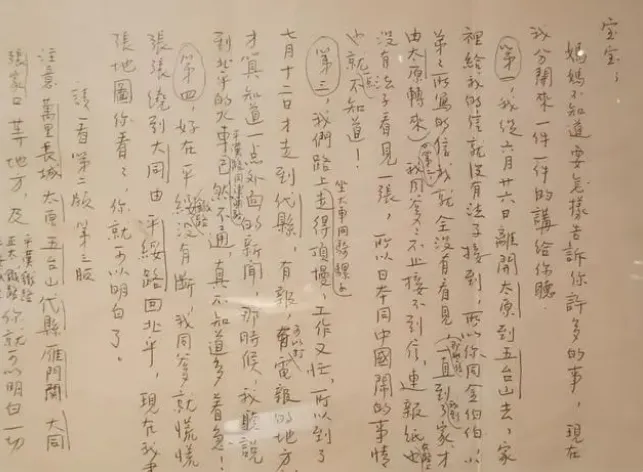 宝宝,
媽媽不知道要怎樣告訴你許多的事,現在
我分開來一件一件的講給你聽.
第一,我從六月廿六日離開太原到五台山去,家
裡給我的信就沒有法子接到,所以你同金伯伯、小
弟弟所寫的信我就全沒有看見(那些信一直到我到了家才
由太原轉來)
第二 我同爹爹不止接不到信,連報紙在路上也
沒有法子看見一張,所以日本同中國鬧的事情
也就一點不知道!
第三,我們路上坐大車同騎騾子走得頂慢,工作又忙,所以到了
七月十二日才走到代縣,有報,可以打電報的地方,
才算知道一点外面的新聞,那時候,我聽說
到北平的火車,平漢路同津浦路已然不通,真不知道多着急!
第四,好在平綏鐵路沒有斷,我同爹爹就慌慌
張張繞到大同由平綏路回北平,現在我畫
張地圖你看看,你就可以明白了。
請看第二版 第三版
注意萬里長城 太原 五台山 代縣 雁門關 大同
張家口等地方,及平漢鐵路 正太鐵路 你就可以明白一切